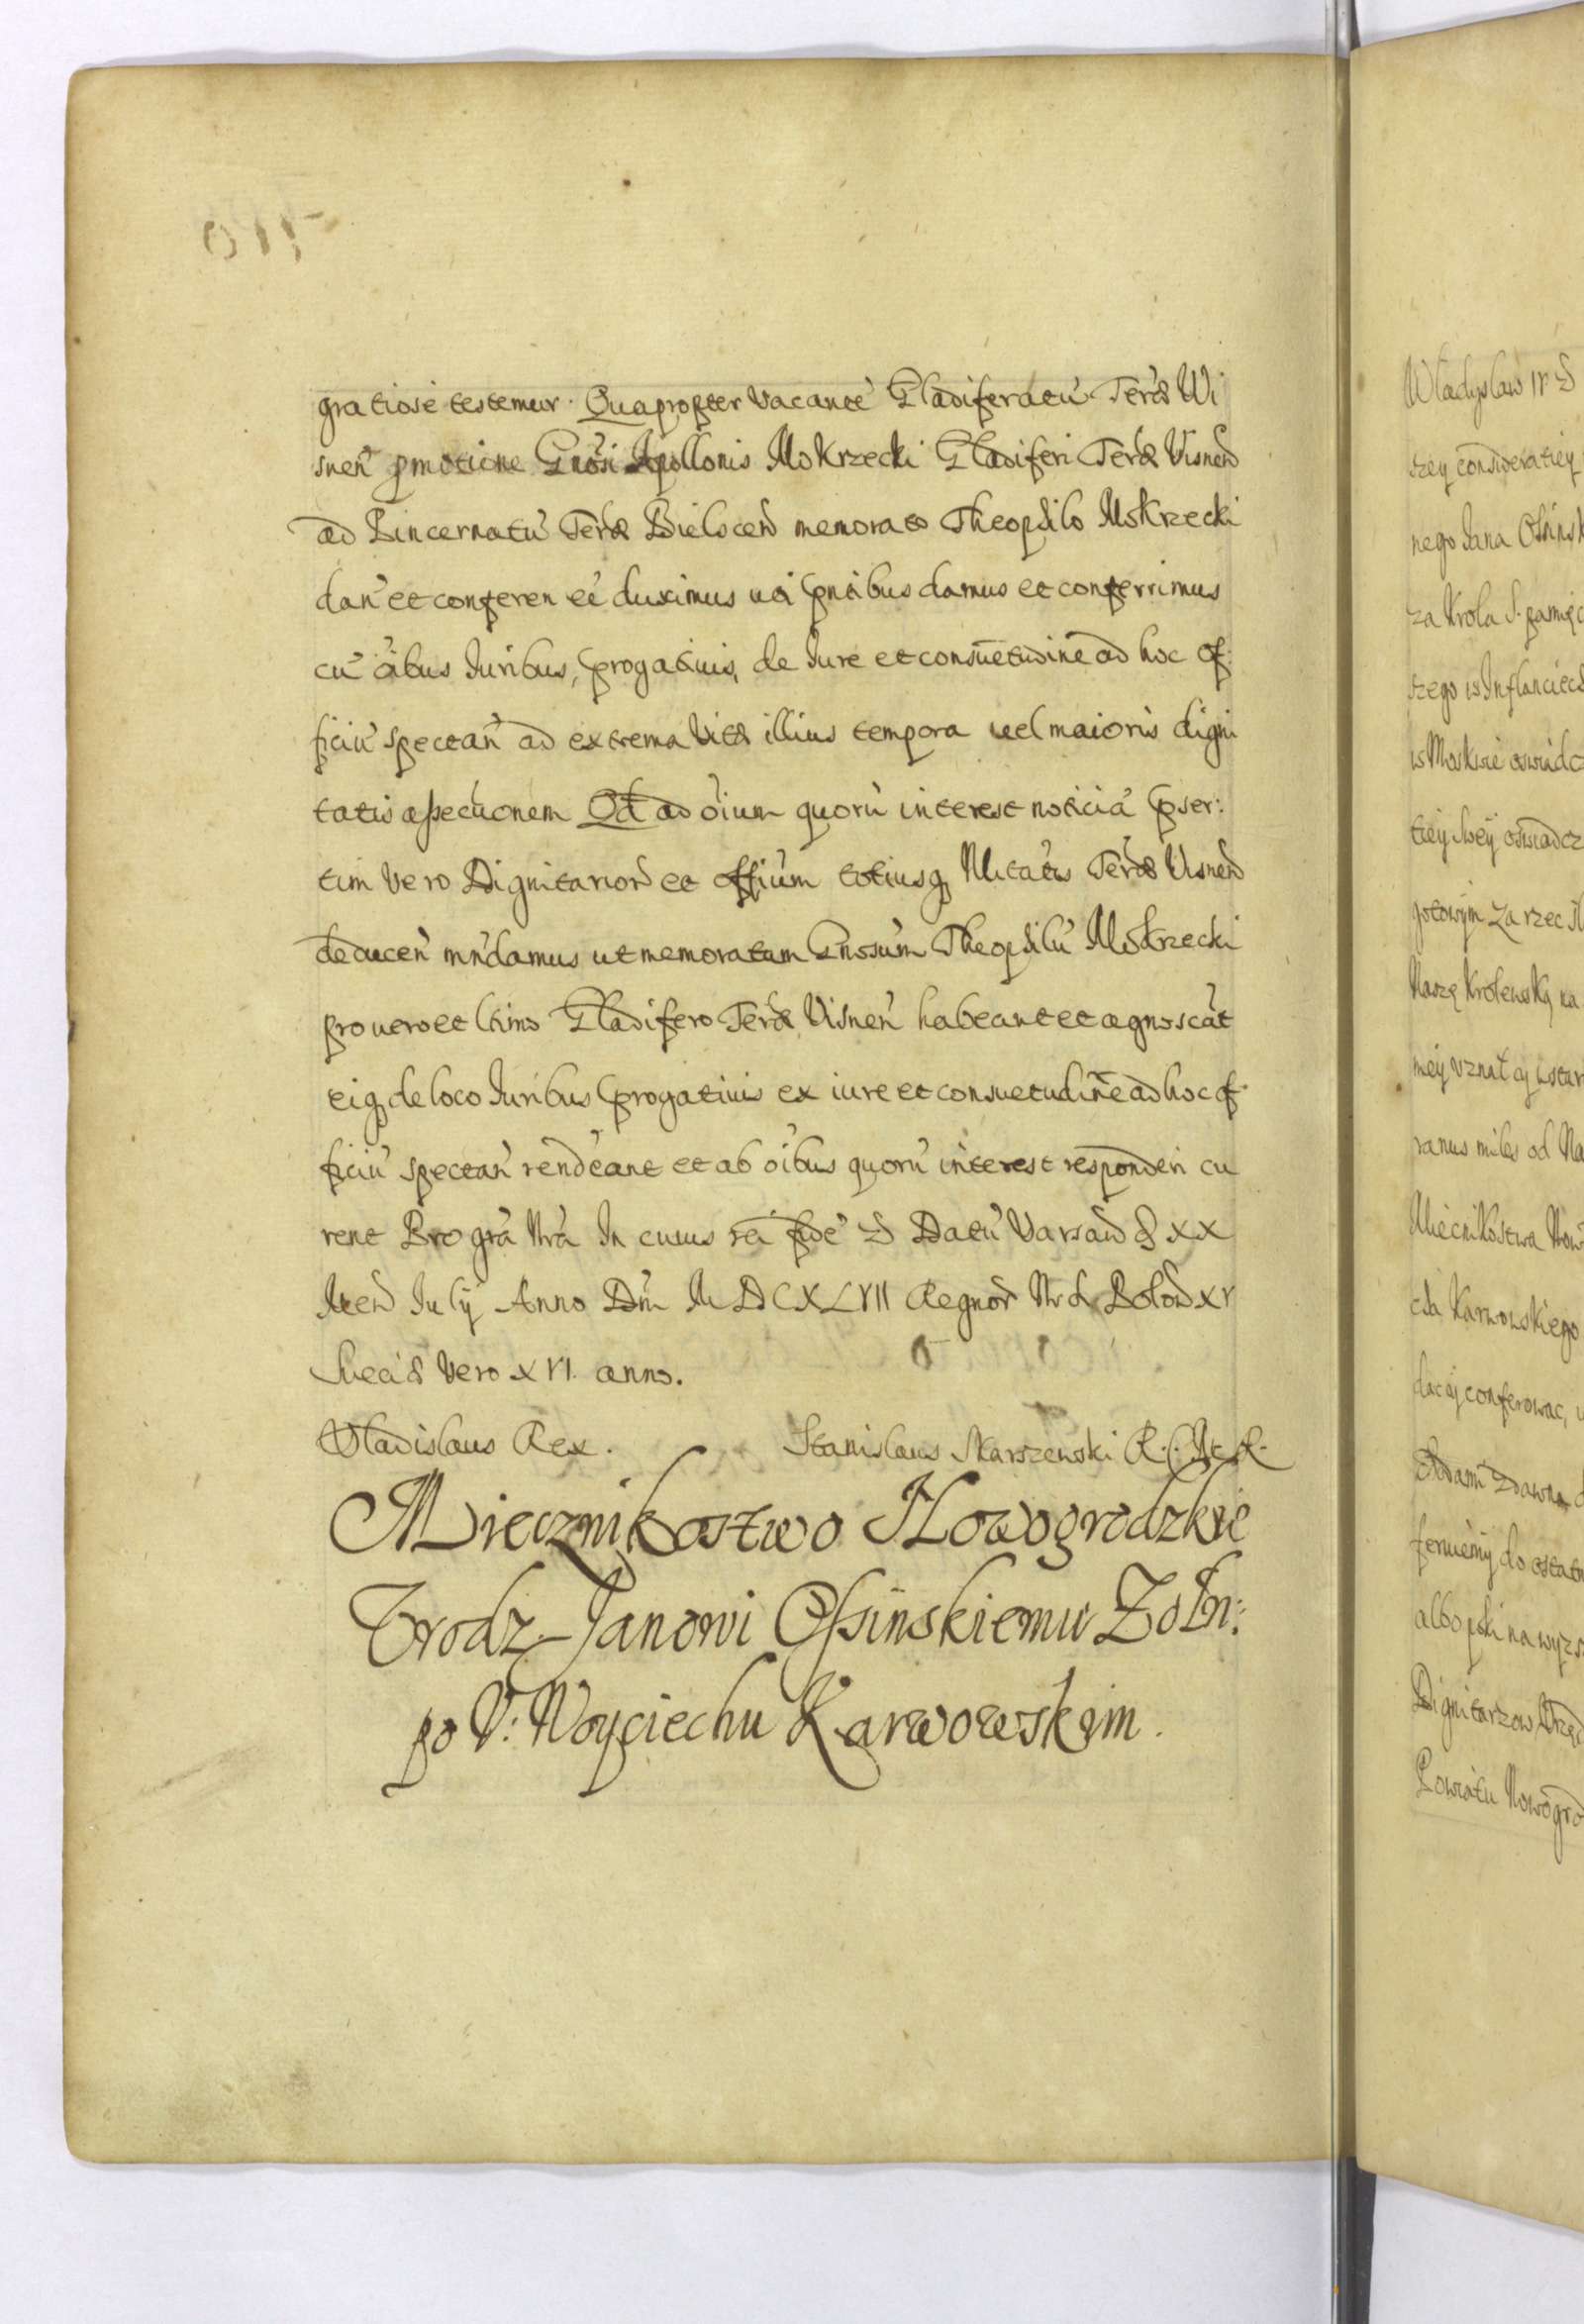 gratiose testemur. Quapropter vacante Gladiferatu Terræ Wi
snen pmotione Gnosi Apollonis Mokrzecki Gladiferi Terræ Visnen
ad Pincernatu Terræ Bielscen memorato Theophilo Mokrzecki
dan et conferen eē duximus uti pntibus damus et conferrimus
cu oibus Iuribus, progatiuis, de Iure et consuetudine ad hoc of:
ficiu spectan ad extrema vitæ illius tempora uel maioris digni
tatis assecuonem Qd ad oium quoru interest noticia pser:
tim vero Dignitarior et offium totiusq Nitatis Terræ Visnen
deducen mndamus ut memoratum Gnosum Theophilu Mokrzecki
pro uero et ltimo Gladifero Terræ Visnen habeant et agnoscat
eiq de loco Iuribus progatiuis ex iure et consuetudine ad hoc of
ficiu spectan rendeant et ab oibus quoru interest responderi cu
rent Pro gra Nra In cuius rei fide & Datu Varsaw d XX
Men July Anno Dni M D C X L VII Regnor Nr Polon XV
Sueciæ vero XVI. anno.
Vladislaus Rex. Stanislaus Skarszewski R. C. M. R.
Miecznikostwo Nowogrodzkie
Vrodz Janowi Ossinskiemu Zołn:
po V: Woyciechu Karwowskim.
Władysław IV &
szey consideratiey
nego Jana Ossinsk
za Krola S. pamięc
szego w Inflanciech
w Moskwie oswiadc
tiey swey oswiadcz
gotowym za rzec
Naszę Krolewską na
mey vznał cy
ranus miles od Na
Miecnikostwa Now
cha Karwowskiego
dac cy conferowac, u
Dodami zdawna
feruiemy do ostatn
albo na wyzs
Dignitarzow Vrzęd
Powiatu Nowogro